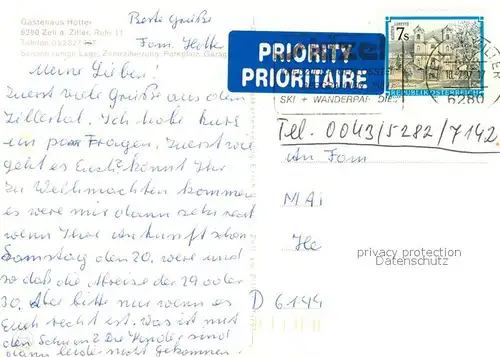 Gästehaus Hotter
6280 Zell a. Ziller, Rohr 11
Telefon 05282/
Sonnige ruhige Lage, Zentralheizung, Parkplatz, Garage
Beste Grüße
Fam. Hotter
Meine Lieben!
Zuerst viele Grüße aus dem
Zillertal. Ich habe kurz
ein paar Fragen. Zuerst wie
geht es Euch? Könnt Ihr
zu Weihnachten kommen
es were mir dann sehr recht
wenn Ihre Ankunft schon
Samstag den 20. were und
so daß die Abreise der 29 oder
30. Aber bitte nur wenn es
Euch recht ist. Was ist mit
den
dann leider nicht gekommen.
PRIORITY
PRIORITAIRE
7s
REPUBLIK ÖSTERREICH
SKI + WANDERPARADIES
6280
Tel. 0043/5282/7142
An Fam
MAI
He
D 6144
privacy protection
Datenschutz